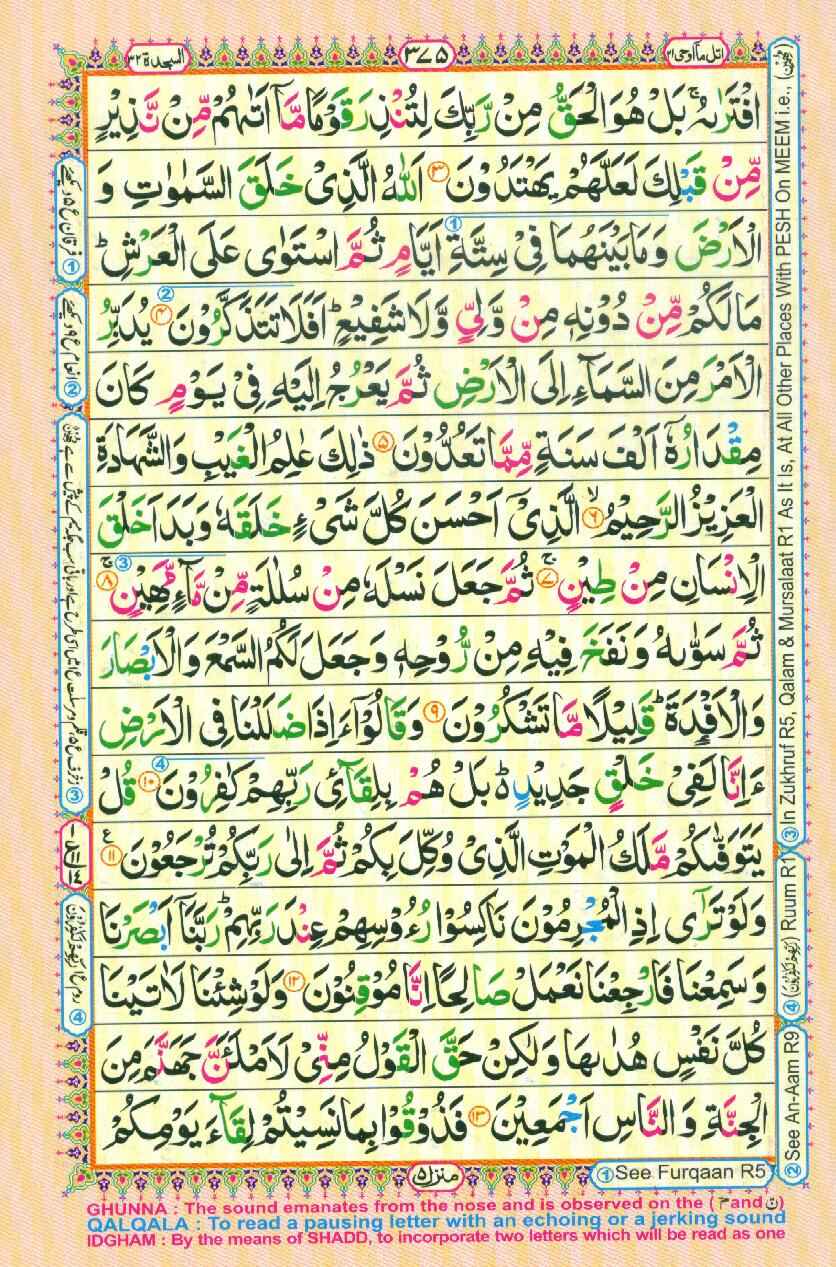 اتل ما اوحی ۲۱
۳۷۵
السجدة ۳۲
افْتَرٰىهُ ۚ بَلْ هُوَ الْحَقُّ مِنْ رَّبِّكَ لِتُنْذِرَ قَوْمًا مَّاۤ اَتٰىهُمْ مِّنْ نَّذِيْرٍ
مِّنْ قَبْلِكَ لَعَلَّهُمْ يَهْتَدُوْنَ ۝۳ اَللّٰهُ الَّذِيْ خَلَقَ السَّمٰوٰتِ وَ
الْاَرْضَ وَمَا بَيْنَهُمَا فِيْ سِتَّةِ اَيَّامٍ ثُمَّ اسْتَوٰى عَلَى الْعَرْشِ ؕ
مَا لَكُمْ مِّنْ دُوْنِهٖ مِنْ وَّلِيٍّ وَّلَا شَفِيْعٍ ؕ اَفَلَا تَتَذَكَّرُوْنَ ۝۴ يُدَبِّرُ
الْاَمْرَ مِنَ السَّمَآءِ اِلَى الْاَرْضِ ثُمَّ يَعْرُجُ اِلَيْهِ فِيْ يَوْمٍ كَانَ
مِقْدَارُهٗۤ اَلْفَ سَنَةٍ مِّمَّا تَعُدُّوْنَ ۝۵ ذٰلِكَ عٰلِمُ الْغَيْبِ وَالشَّهَادَةِ
الْعَزِيْزُ الرَّحِيْمُ ۙ۝۶ الَّذِيْۤ اَحْسَنَ كُلَّ شَيْءٍ خَلَقَهٗ وَبَدَاَ خَلْقَ
الْاِنْسَانِ مِنْ طِيْنٍ ۚ۝۷ ثُمَّ جَعَلَ نَسْلَهٗ مِنْ سُلٰلَةٍ مِّنْ مَّآءٍ مَّهِيْنٍ ۚ۝۸
ثُمَّ سَوّٰىهُ وَنَفَخَ فِيْهِ مِنْ رُّوْحِهٖ وَجَعَلَ لَكُمُ السَّمْعَ وَالْاَبْصَارَ
وَالْاَفْـِٕدَةَ ؕ قَلِيْلًا مَّا تَشْكُرُوْنَ ۝۹ وَقَالُوْۤا ءَاِذَا ضَلَلْنَا فِي الْاَرْضِ
ءَاِنَّا لَفِيْ خَلْقٍ جَدِيْدٍ ۬ؕ بَلْ هُمْ بِلِقَآئِ رَبِّهِمْ كٰفِرُوْنَ ۝۱۰ قُلْ
يَتَوَفّٰىكُمْ مَّلَكُ الْمَوْتِ الَّذِيْ وُكِّلَ بِكُمْ ثُمَّ اِلٰى رَبِّكُمْ تُرْجَعُوْنَ ۝۱۱
وَلَوْ تَرٰۤى اِذِ الْمُجْرِمُوْنَ نَاكِسُوْا رُءُوْسِهِمْ عِنْدَ رَبِّهِمْ ؕ رَبَّنَاۤ اَبْصَرْنَا
وَسَمِعْنَا فَارْجِعْنَا نَعْمَلْ صَالِحًا اِنَّا مُوْقِنُوْنَ ۝۱۲ وَلَوْ شِئْنَا لَاٰتَيْنَا
كُلَّ نَفْسٍ هُدٰىهَا وَلٰكِنْ حَقَّ الْقَوْلُ مِنِّيْ لَاَمْلَـَٔنَّ جَهَنَّمَ مِنَ
الْجِنَّةِ وَالنَّاسِ اَجْمَعِيْنَ ۝۱۳ فَذُوْقُوْا بِمَا نَسِيْتُمْ لِقَآءَ يَوْمِكُمْ
منزل ۵
① See Furqaan R5
② See An-Aam R9
③ In Zukhruf R5, Qalam & Mursalaat R1 As It Is, At All Other Places With PESH On MEEM i.e.,
④ Ruum R1
GHUNNA : The sound emanates from the nose and is observed on the (مّ and نّ)
QALQALA : To read a pausing letter with an echoing or a jerking sound
IDGHAM : By the means of SHADD, to incorporate two letters which will be read as one